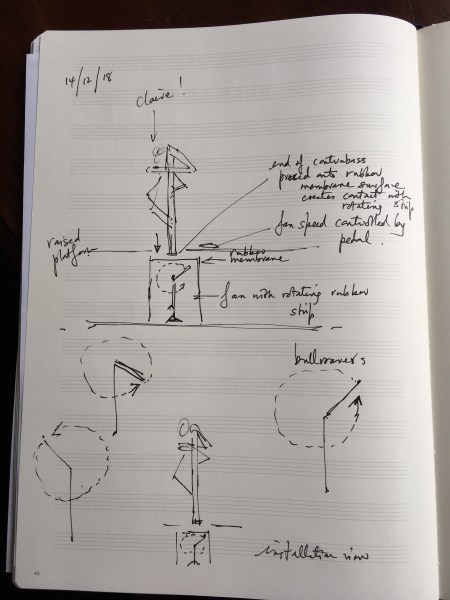 14/12/18
claire!
end of contrabass
pressed onto rubber
membrane surface
creates contact with
rotating strip
fan speed controlled by
pedal.
raised
platform
rubber
membrane
fan with rotating rubber
strip
bullroarers
installation view
40